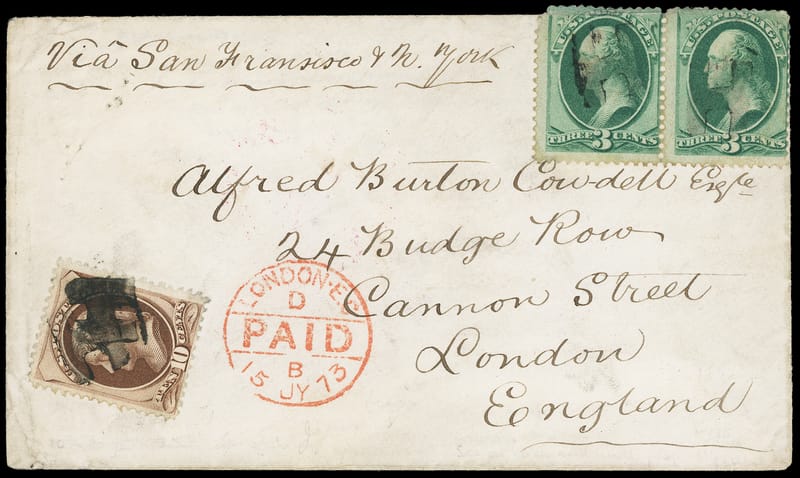 Viâ San Fransisco & N. York
U.S. POSTAGE
THREE 3 CENTS
U.S. POSTAGE
THREE 3 CENTS
Alfred Burton Cowdell Esqre
24 Budge Row
Cannon Street
London
England
LONDON·E.C
D
PAID
B
15 JY 73
10